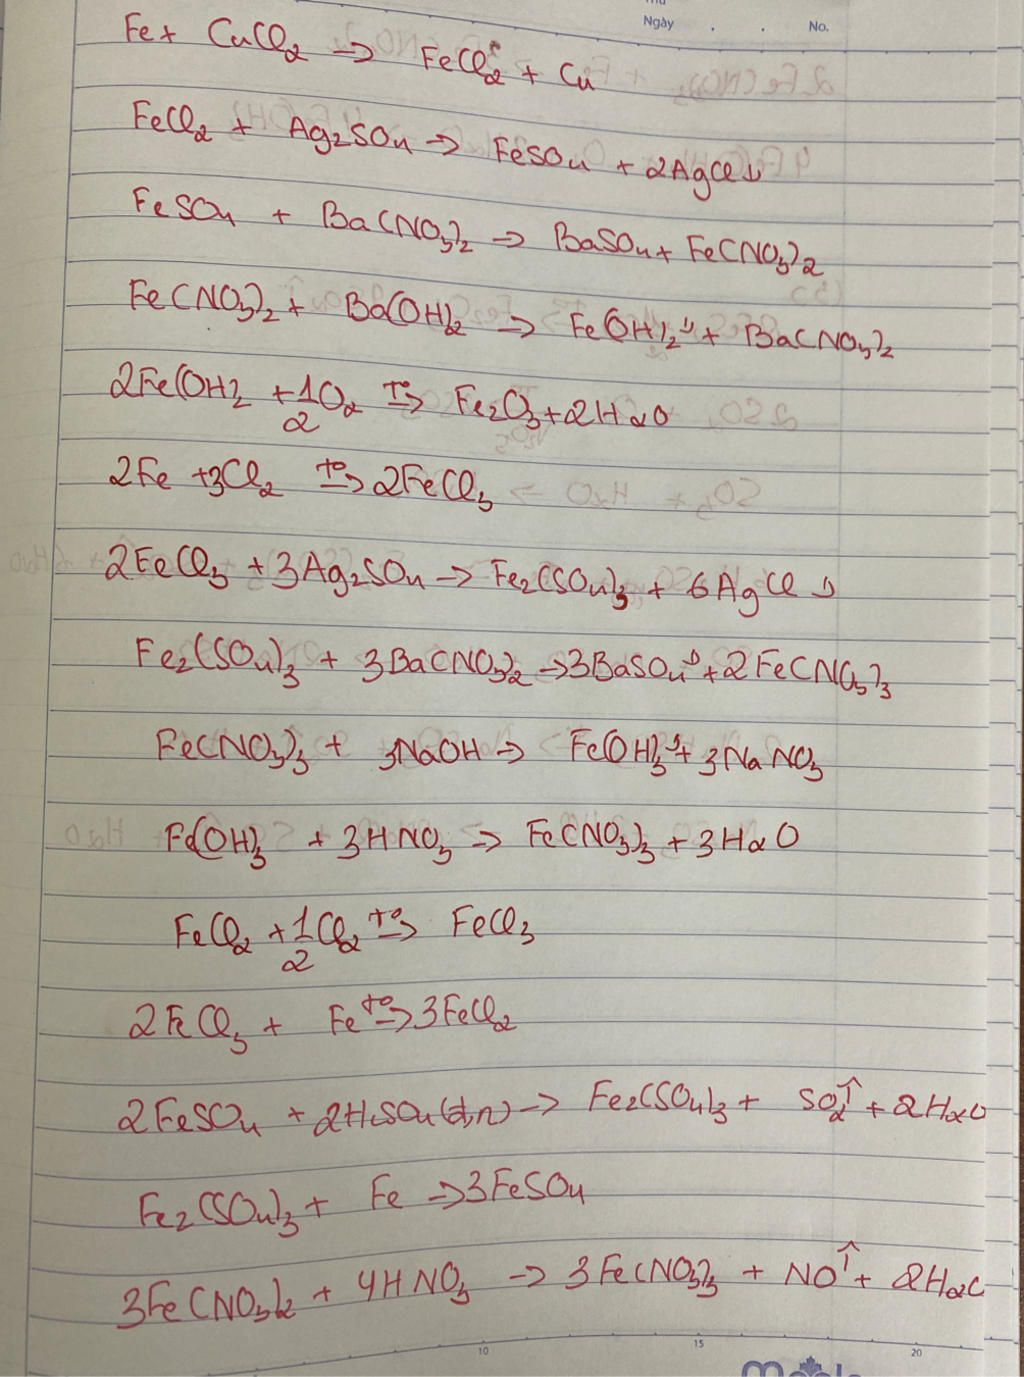 Ngày . . No.
Fe + CuCl₂ → FeCl₂ + Cu
FeCl₂ + Ag₂SO₄ → FeSO₄ + 2AgCl↓
FeSO₄ + Ba(NO₃)₂ → BaSO₄ + Fe(NO₃)₂
Fe(NO₃)₂ + Ba(OH)₂ → Fe(OH)₂↓ + Ba(NO₃)₂
2Fe(OH)₂ + 1/2 O₂ t°→ Fe₂O₃ + 2H₂O
2Fe + 3Cl₂ t°→ 2FeCl₃
2FeCl₃ + 3Ag₂SO₄ → Fe₂(SO₄)₃ + 6AgCl↓
Fe₂(SO₄)₃ + 3Ba(NO₃)₂ → 3BaSO₄↓ + 2Fe(NO₃)₃
Fe(NO₃)₃ + 3NaOH → Fe(OH)₃↓ + 3NaNO₃
Fe(OH)₃ + 3HNO₃ → Fe(NO₃)₃ + 3H₂O
FeCl₂ + 1/2 Cl₂ t°→ FeCl₃
2FeCl₃ + Fe t°→ 3FeCl₂
2FeSO₄ + 2H₂SO₄(đ,n) → Fe₂(SO₄)₃ + SO₂↑ + 2H₂O
Fe₂(SO₄)₃ + Fe → 3FeSO₄
3Fe(NO₃)₂ + 4HNO₃ → 3Fe(NO₃)₃ + NO↑ + 2H₂O
10 15 20